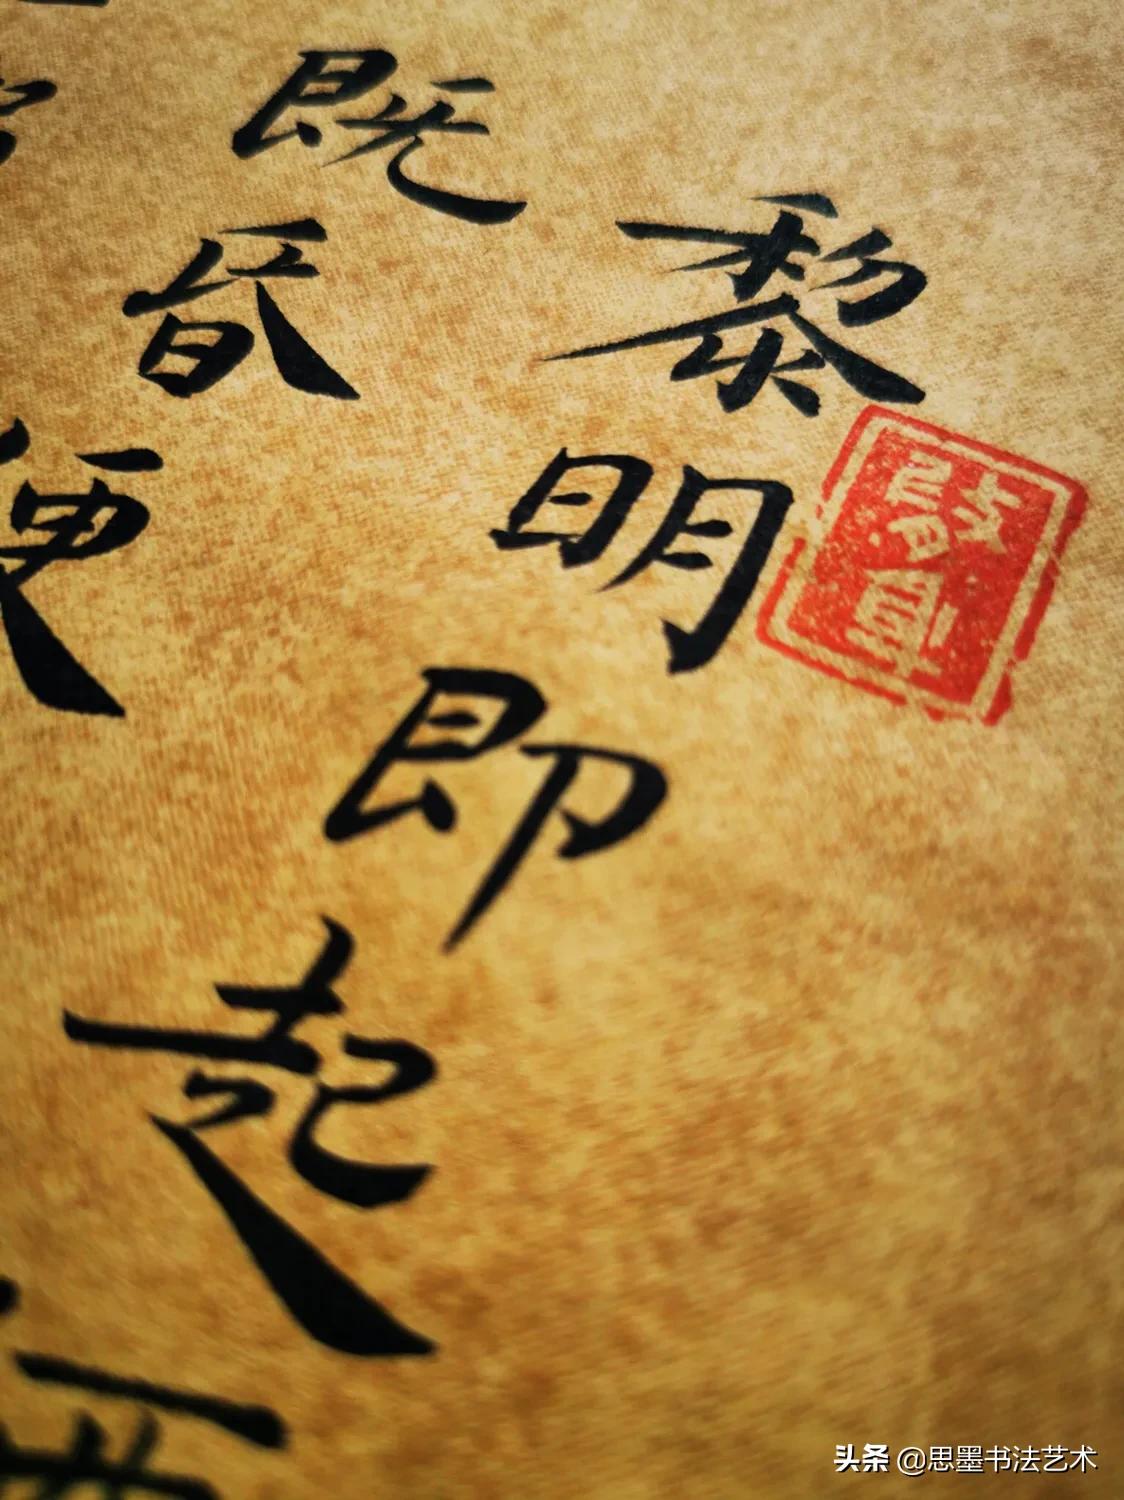 黎明即起
既昏便
头条 @思墨书法艺术